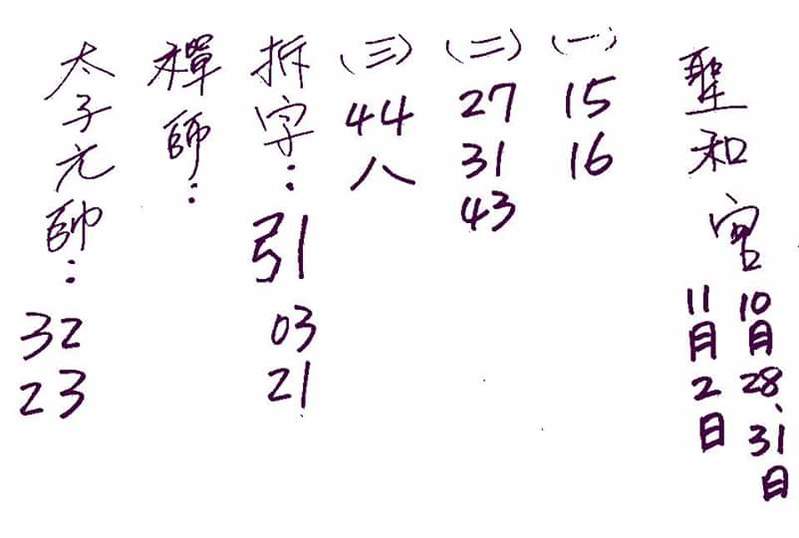 聖和宮
10月28、31日
11月2日
(一) 15 16
(二) 27 31 43
(三) 44 八
拆字：引 03 21
禪師：
太子元帥：32 23